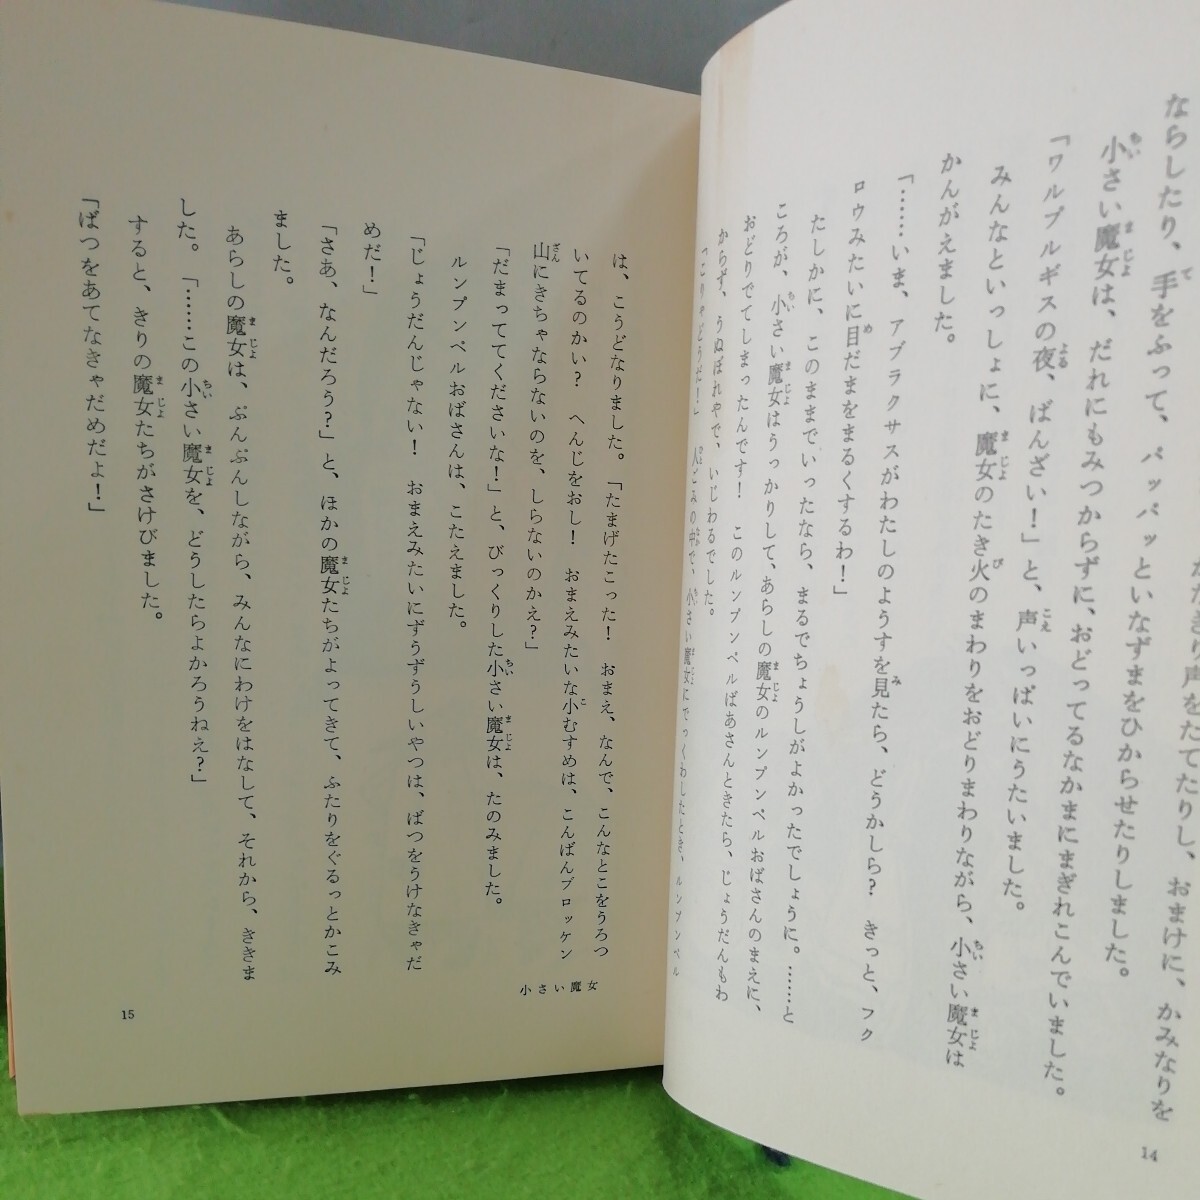 かなきり声をたてたりし、おまけに、かみなりを
ならしたり、手をふって、パッパッといなずまをひからせたりしました。
小さい魔女は、だれにもみつからずに、おどってるなかまにまぎれこんでいました。
「ワルプルギスの夜、ばんざい！」と、声いっぱいにうたいました。
みんなといっしょに、魔女のたき火のまわりをおどりまわりながら、小さい魔女は
かんがえました。
「……いま、アブラクサスがわたしのようすを見たら、どうかしら？　きっと、フク
ロウみたいに目だまをまるくするわ！」
たしかに、このままでいったなら、まるでちょうしがよかったでしょうに。……と
ころが、小さい魔女はうっかりして、あらしの魔女のルンプンペルおばさんのまえに、
おどりでてしまったんです！　このルンプンペルばあさんときたら、じょうだんもわ
からず、うぬぼれやで、いじわるでした。
「こりゃどうだ！」　人ごみの中で、小さい魔女にでっくわしたとき、ルンプンペル
14
は、こうどなりました。「たまげたこった！　おまえ、なんで、こんなとこをうろつ
いてるのかい？　へんじをおし！　おまえみたいな小むすめは、こんばんブロッケン
山にきちゃならないのを、しらないのかえ？」
「だまっててくださいな！」と、びっくりした小さい魔女は、たのみました。
ルンプンペルおばさんは、こたえました。
「じょうだんじゃない！　おまえみたいにずうずうしいやつは、ばつをうけなきゃだ
めだ！」
「さあ、なんだろう？」と、ほかの魔女たちがよってきて、ふたりをぐるっとかこみ
ました。
あらしの魔女は、ぷんぷんしながら、みんなにわけをはなして、それから、ききま
した。「……この小さい魔女を、どうしたらよかろうねえ？」
すると、きりの魔女たちがさけびました。
「ばつをあてなきゃだめだよ！」
小さい魔女
15